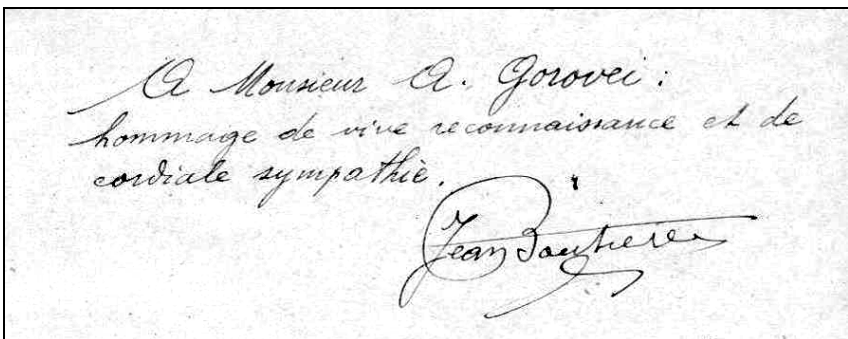 A Monsieur A. Gorovei :
hommage de vive reconnaissance et de
cordiale sympathie.
Jean Boutière